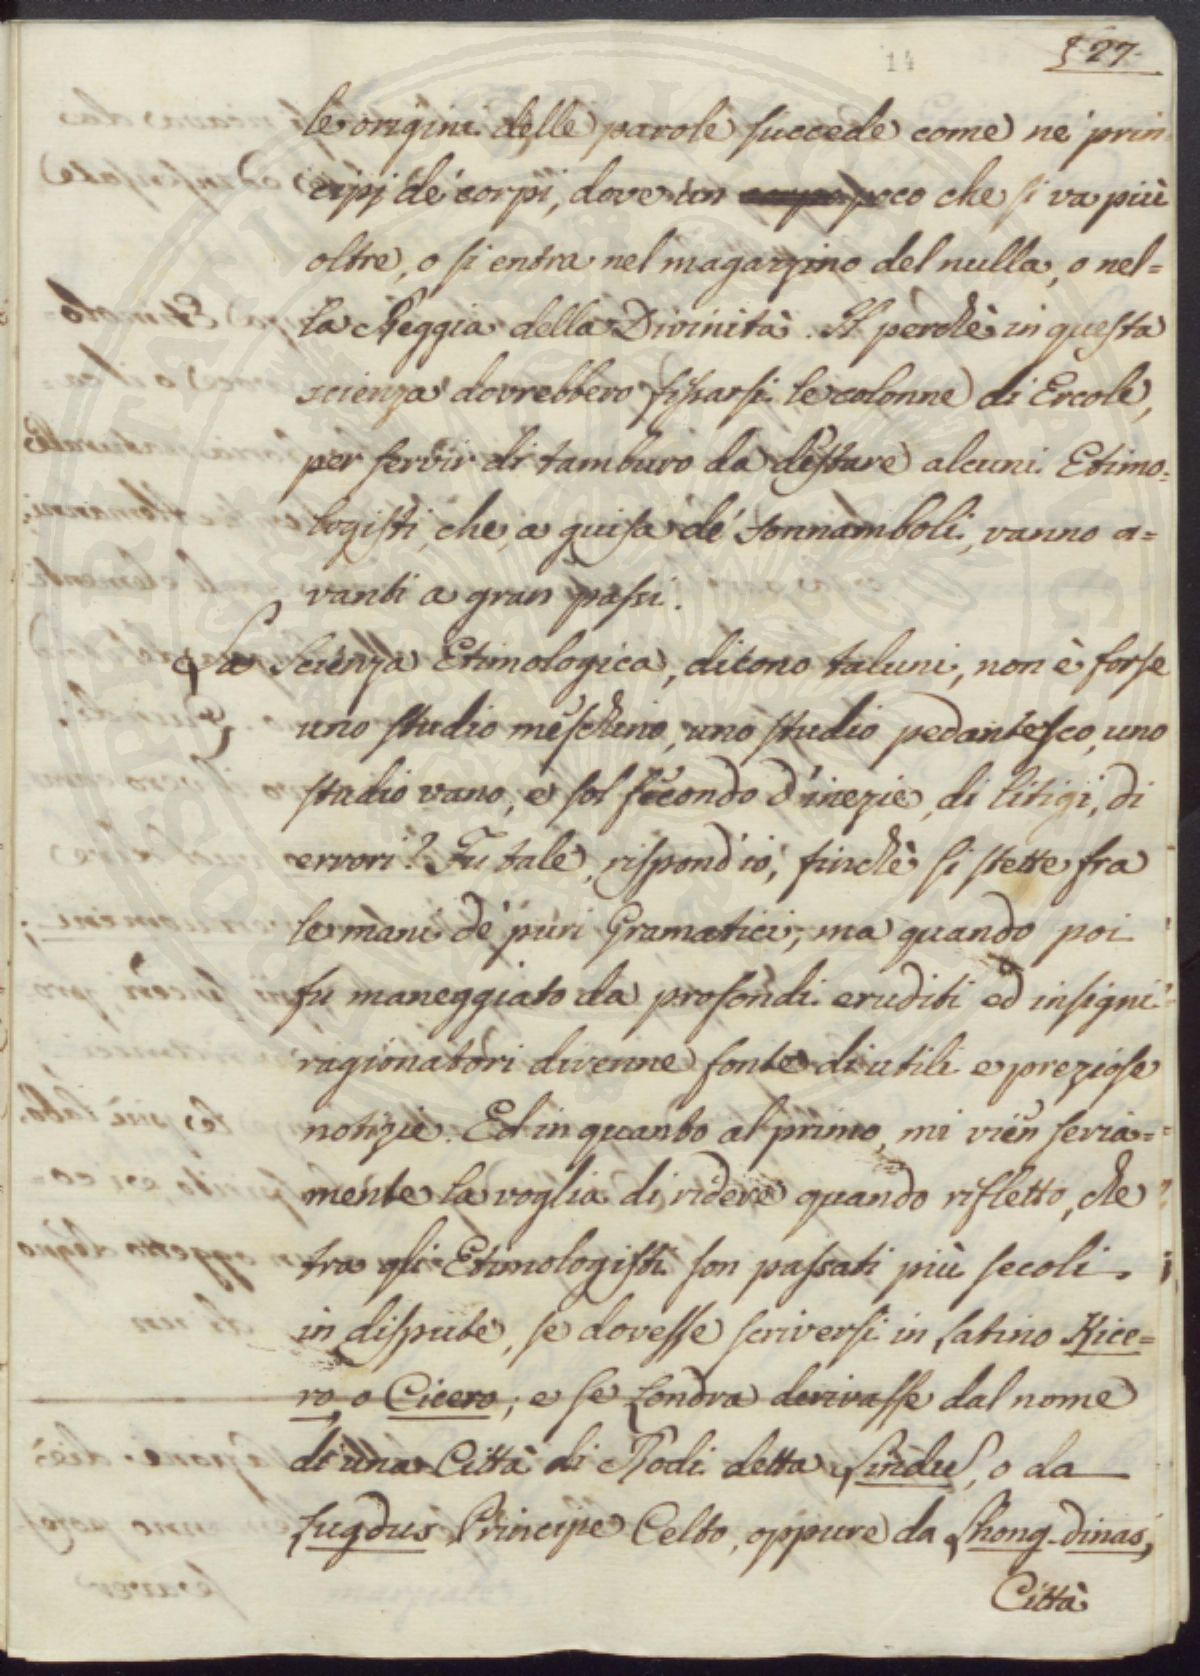 14
§27.
le origini delle parole succede come ne' prin-
cipj de' corpi, dove un poco che si va più
oltre, o si entra nel magazzino del nulla, o nel=
la Reggia della Divinità. Il perchè in questa
scienza dovrebbero fissarsi le colonne di Ercole,
per servir di tamburo da destare alcuni Etimo=
logisti, che, a guisa de' sonnamboli, vanno a=
vanti a gran passi.
La Scienza Etimologica, dicono taluni, non è forse
uno studio meschino, uno studio pedantesco, uno
studio vano, e sol fecondo d'inezie, di litigi, di
errori? Fu tale, rispond'io, finchè si stette fra
le mani de' puri Gramatici; ma quando poi
fu maneggiato da profondi eruditi ed insigni
ragionatori divenne fonte di utili e preziose
notizie. Ed in quanto al primo, mi vien seria=
mente la voglia di ridere quando rifletto, che
tra gli Etimologisti son passati più secoli
in dispute, se dovesse scriversi in latino Kice=
ro, o Cicero; e se Londra derivasse dal nome
di una Città di Rodi detta Lindus, o da
Lugdus Principe Celto, oppure da Lhong-dinas,
Città